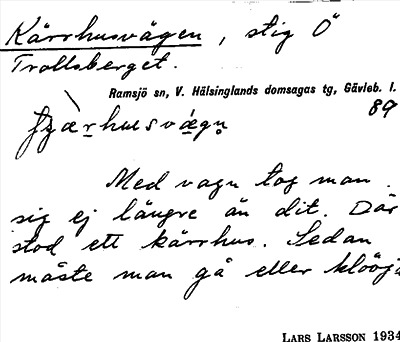 Kärrhusvägen, stig Ö
Trollsberget.
Ramsjö sn, V. Hälsinglands domsagas tg, Gävleb. l.
89
Med vagn tog man
sig ej längre än dit. Där
stod ett kärrhus. Sedan
måste man gå eller
LARS LARSSON 1934